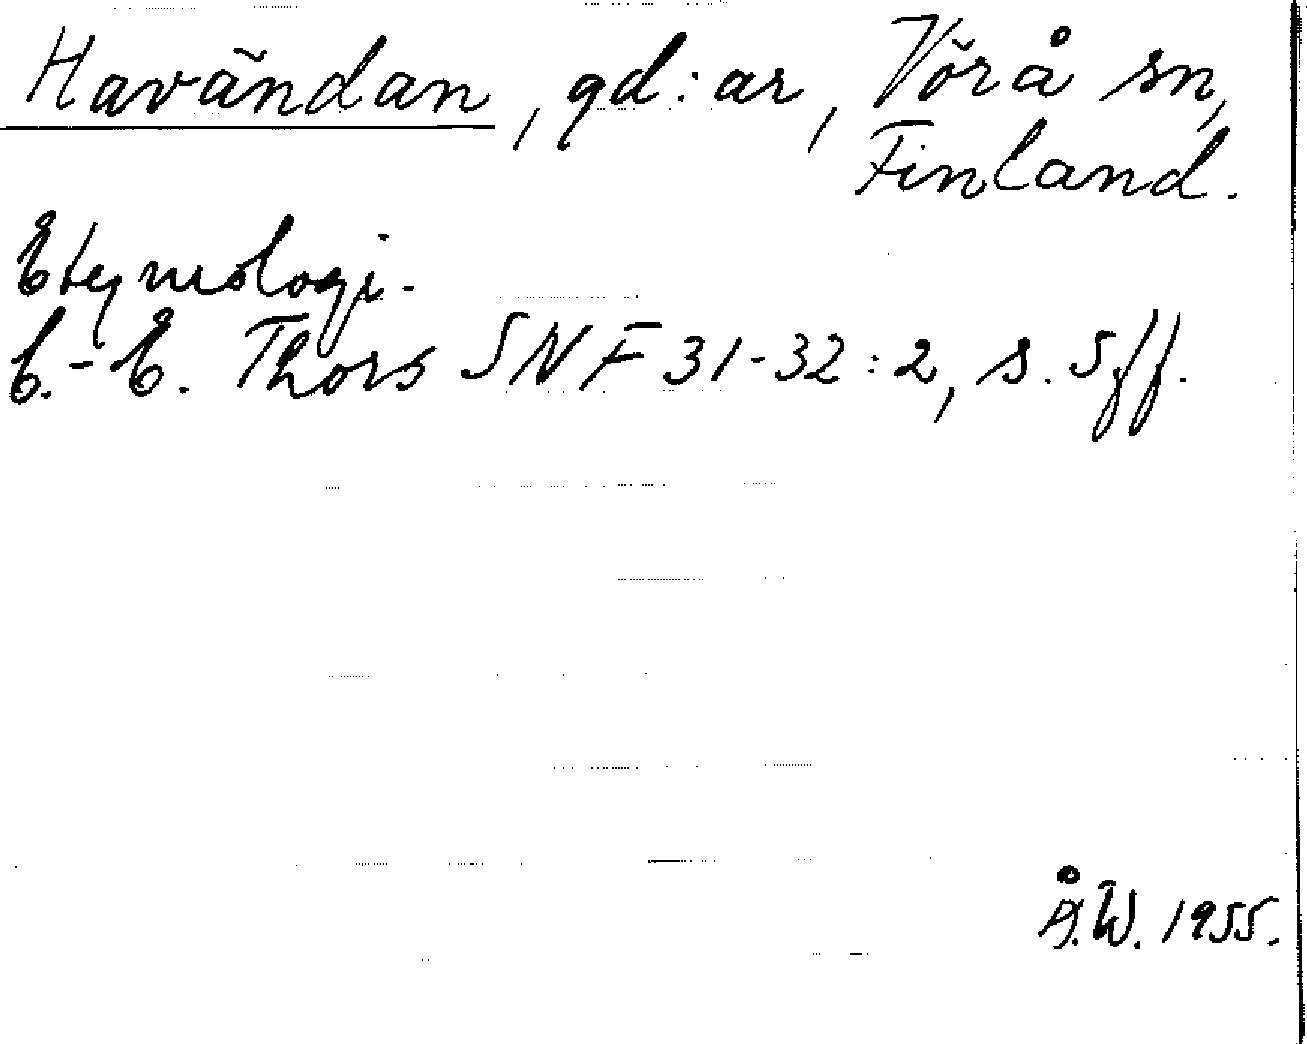 Havändan, gd:ar, Vörå sn,
Finland.
Etymologi.
C.-E. Thors SNF 31-32:2, s. 5ff.
Å.W. 1955.